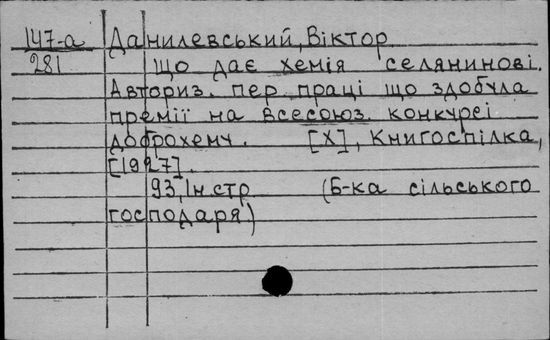 147-а Данилевський, Віктор
281 Що дає хемія селянинові.
Авториз. пер. праці що здобула
премії на всесоюз. конкурсі
доброхему. [Х], Книгоспілка,
[1927].
93, Iн.стр (Б-ка сільського
господаря)